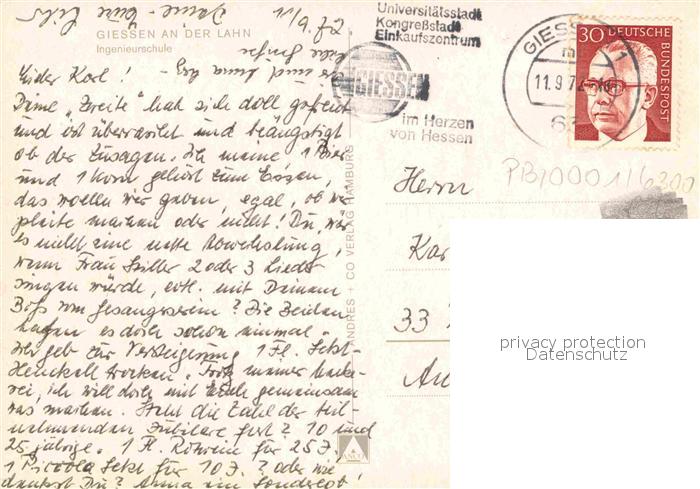 11/9.72
GIESSEN AN DER LAHN
Ingenieurschule
Lieber Karl!
Deine "Zweite" hat sich doll gefreut
und ist überrascht und beängstigt
ob der Zusagen. Ich meine, 1 Bier
und 1 Korn gehört zum Essen,
das wollen wir geben, egal, ob wir
pleite machen oder nicht! Du, wär
es nicht eine nette Abwechslung,
wenn Frau 2 oder 3 Lieder
singen würde, evtl. mit Deinem
Boß vom Gesangverein? Die beiden
haben es doch schon einmal.
Wer geb zur Versteigerung 1 Fl. Sekt-
Henckell trocken. Trotz meiner
ich will doch mit Euch gemeinsam
was machen. Steht die Zahl der teil-
nehmenden Jubilare fest? 10 und
25 jährige. 1 Fl. Rotwein für 25 J.
1 Piccolo Sekt für 10 J.? oder wie
denkst Du? Anna ein Sonderlob!
ANDRES + CO VERLAG HAMBURG
ANCO
Universitätsstadt
Kongreßstadt
Einkaufszentrum
GIESSEN
im Herzen
von Hessen
GIESSEN 1
11.9.72
63
30 DEUTSCHE
BUNDESPOST
PB/0001/6300
Herrn
Kar
33
privacy protection
Datenschutz